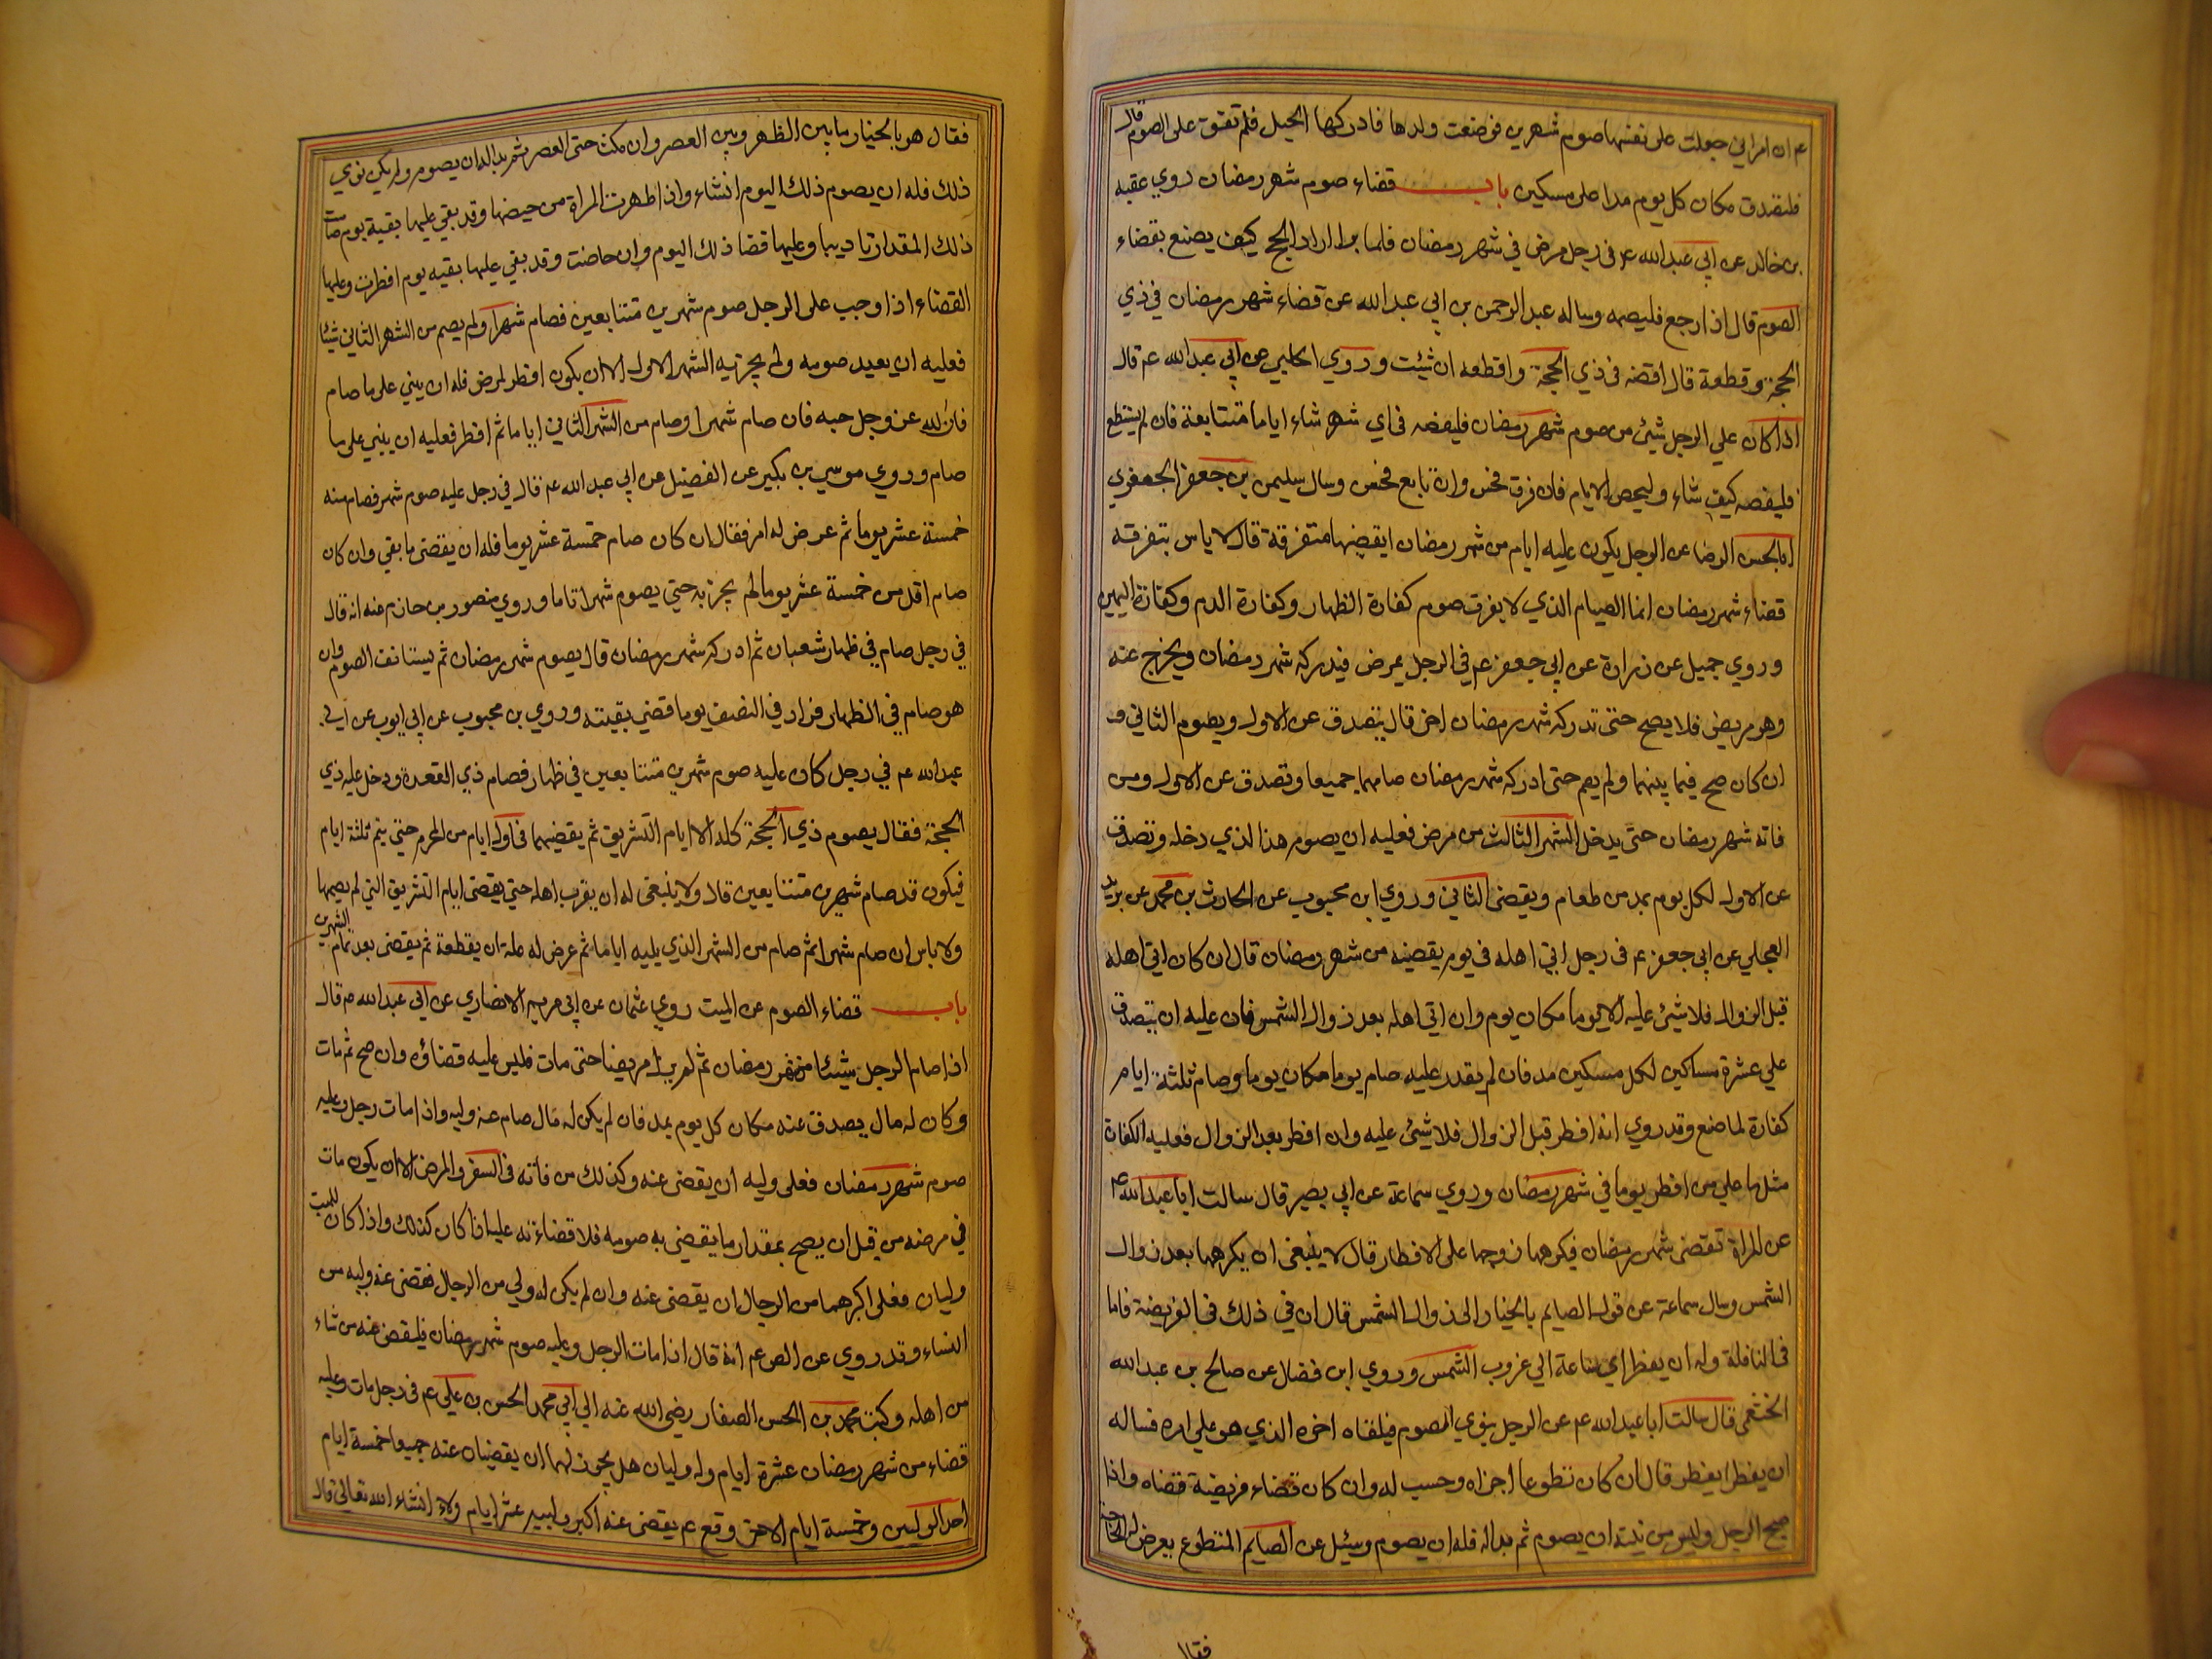 عم ان امراتي جعلت على نفسها صوم شهرين فوضعت ولدها فادركها الحبل فلم تقو على الصوم قال
فلتصدق مكان كل يوم مدا على مسكين باب قضاء صوم شهر رمضان روي عقبه
بن خالد عن ابي عبد الله عم في رجل مرض في شهر رمضان فلما برا اراد الحج كيف يصنع بقضاء
الصوم قال اذا رجع فليصمه وساله عبد الرحمن بن ابي عبد الله عن قضاء شهر رمضان في ذي
الحجة وقطعة قال اقضه في ذي الحجة واقطعه ان شئت وروي الحلبي عن ابي عبد الله عم قال
اذا كان علي الرجل شئ من صوم شهر رمضان فليقضه في اي شهر شاء اياما متتابعة فان لم يستطع
فليقضه كيف شاء وليحص الايام فان فرق فحسن وان تابع فحسن وسال سليمن بن جعفر الجعفري
ابا الحسن الرضا عن الرجل يكون عليه ايام من شهر رمضان ايقضيها متفرقة قال لا باس بتفرقه
قضاء شهر رمضان انما الصيام الذي لا يفرق صوم كفارة الظهار وكفارة الدم وكفارة اليمين
وروي جميل عن زرارة عن ابي جعفر عم في الرجل يمرض فيدركه شهر رمضان ويخرج عنه
وهو مريض فلا يصح حتى تدركه شهر رمضان اخر قال يتصدق عن الاول ويصوم الثاني و
ان كان صح فيما بينهما ولم يصم حتى ادركه شهر رمضان صامهما جميعا وتصدق عن الاول ومن
فاته شهر رمضان حتى يدخل الشهر الثالث من مرض فعليه ان يصوم هذا الذي دخله وتصدق
عن الاول لكل يوم بمد من طعام ويقضى الثاني وروي ابن محبوب عن الحارث بن محمد عن بريد
العجلي عن ابي جعفر عم في رجل اتي اهله في يوم يقضيه من شهر رمضان قال ان كان اتي اهله
قبل الزوال فلا شئ عليه الا يوما مكان يوم وان اتي اهله بعد زوال الشمس فان عليه ان يتصدق
علي عشرة مساكين لكل مسكين مد فان لم يقدر عليه صام يوما مكان يوما وصام ثلثة ايام
كفارة لما صنع وقد روي انه افطر قبل الزوال فلا شئ عليه وان افطر بعد الزوال فعليه الكفارة
مثل ما علي من افطر يوما في شهر رمضان وروي سماعة عن ابي بصير قال سالت ابا عبد الله عم
عن المراة تقضى شهر رمضان فيكرهها زوجها على الافطار قال لا ينبغي ان يكرهها بعد زوال
الشمس وسال سماعة عن قوله الصايم بالخيار الى زوال الشمس قال ان في ذلك في الفريضة فاما
في النافلة وله ان يفطر اي ساعة الي غروب الشمس وروي ابن فضال عن صالح بن عبد الله
الخثعمى قال سالت ابا عبد الله عم عن الرجل ينوي الصوم فيلقاه اخوه الذي هو علي امره فساله
ان يفطر ايفطر قال ان كان تطوعا اجزاه وحسب له وان كان قضاء فريضة قضاه واذا
صبح الرجل وليس من نيته ان يصوم ثم بدا له فله ان يصوم وسئل عن الصايم المتطوع يعرض له الحاجة
فقال
فقال هو بالخيار ما بين الظهر وبين العصر وان مكث حتى العصر ثم بدا له ان يصوم ولم يكن نوي
ذلك فله ان يصوم ذلك اليوم انشاء واذا طهرت المراة من حيضها وقد بقي عليها بقية يوم صامت
ذلك المقدار تاديبا وعليها قضا ذلك اليوم وان حاضت وقد بقي عليها بقيه يوم افطرت وعليها
القضاء اذا وجب على الرجل صوم شهرين متتابعين فصام شهرا ولم يصم من الشهر الثاني شيئا
فعليه ان يعيد صومه ولم يجزيه الشهر الاول الا ان يكون افطر لمرض فله ان يبني على ما صام
فان الله عز وجل حبسه فان صام شهرا وصام من الشهر الثاني اياما ثم افطر فعليه ان يبني على ما
صام وروي موسي بن بكير عن الفضيل عن ابي عبد الله عم قال في رجل عليه صوم شهر فصام منه
خمسة عشر يوما ثم عرض له امر فقال ان كان صام خمسة عشر يوما فله ان يقضى ما بقي وان كان
صام اقل من خمسة عشر يوما لم يجز به حتي يصوم شهرا تاما وروي منصور بن حازم عنه انه قال
في رجل صام في ظهار شعبان ثم ادركه شهر رمضان قال يصوم شهر رمضان ثم يستانف الصوم وان
هو صام في الظهار فزاد في النصف يوما قضي بقيته وروي بن محبوب عن ابي ايوب عن ابي
عبد الله عم في رجل كان عليه صوم شهرين متتابعين في ظهار فصام ذي القعدة ودخل عليه ذي
الحجة فقال يصوم ذي الحجة كله الا ايام التشريق ثم يقضيها في اول ايام من المحرم حتى يتم ثلثة ايام
فيكون قد صام شهرين متتابعين قال ولا ينبغى له ان يقرب اهله حتي يقضى ايام التشريق التي لم يصمها
ولا باس ان صام شهرا ثم صام من الشهر الذي يليه اياما ثم عرض له علة ان يقطعة ثم يقضى بعد تمام الشهرين
باب قضاء الصوم عن الميت روي عثمان عن ابي مريم الانصاري عن ابي عبد الله عم قال
اذا صام الرجل شيئا من شهر رمضان ثم لم يزل مريضا حتى مات فليس عليه قضاؤه وان صح ثم مات
وكان له مال يصدق عنه مكان كل يوم بمد فان لم يكن له مال صام عنه وليه واذا مات رجل وعليه
صوم شهر رمضان فعلى وليه ان يقضى عنه وكذلك من فاته في السفر والمرض الا ان يكون مات
في مرضه من قبل ان يصح بمقدار ما يقضى به صومه فلا قضاء له عليه اذا كان كذلك واذا كان للميت
وليان فعلى اكبرهما من الرجال ان يقضى عنه وان لم يكن له ولي من الرجال فقضى عنه وليه من
النساء وقد روي عن الص عم انه قال اذا مات الرجل وعليه صوم شهر رمضان فليقض عنه من شاء
من اهله وكتب محمد بن الحسن الصفار رضي الله عنه الي ابي محمد الحسن بن علي عم في رجل مات وعليه
قضاء من شهر رمضان عشرة ايام وله وليان هل يجوز لهما ان يقضيان عنه جميعا خمسة ايام
احد الوليين وخمسة ايام الاخر وقع عم يقضى عنه اكبر وليه عشر ايام ولاء انشاء الله تعالى قال